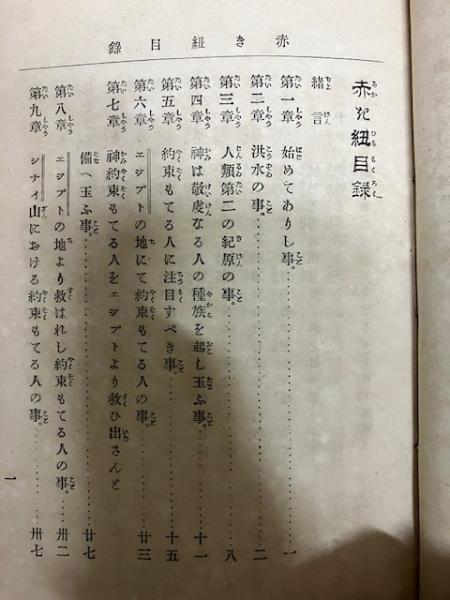 赤き紐目録
赤き紐目録
緒言
第一章 始めてありし事。 一
第二章 洪水の事。 二
第三章 人類第二の紀原の事。 八
第四章 神は敬虔なる人の種族を起し玉ふ事。 十一
第五章 約束もてる人に注目すべき事。 十五
第六章 エジプトの地にて約束もてる人の事。 廿三
第七章 神約束もてる人をエジプトより救ひ出さんと
備へ玉ふ事。 廿七
第八章 エジプトの地より救はれし約束もてる人の事。 卅二
第九章 シナイ山における約束もてる人の事。 卅七
一